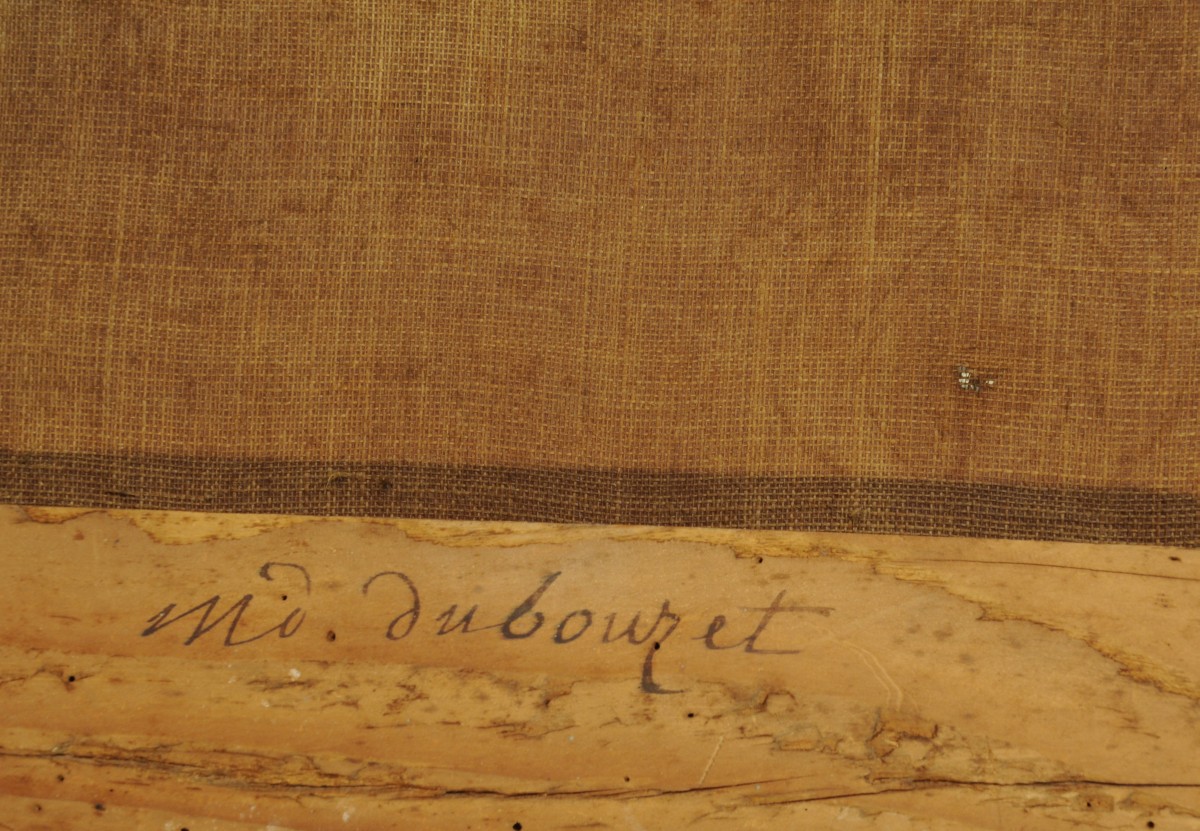 Md. dubouzet